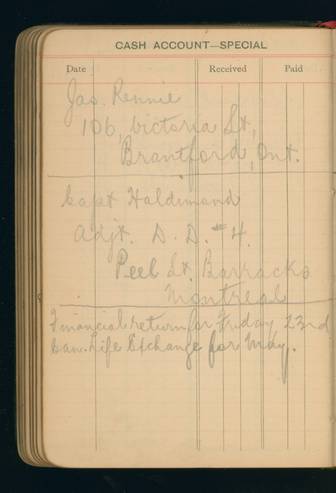 CASH ACCOUNT—SPECIAL
Date Received Paid
Jas. Rennie
106, Victoria St,
Brantford, Ont.
Capt Haldimand
Adjt. D. D. #4.
Peel St. Barracks
Montreal
Financial return for Friday 23rd
Can. Life Exchange for May.